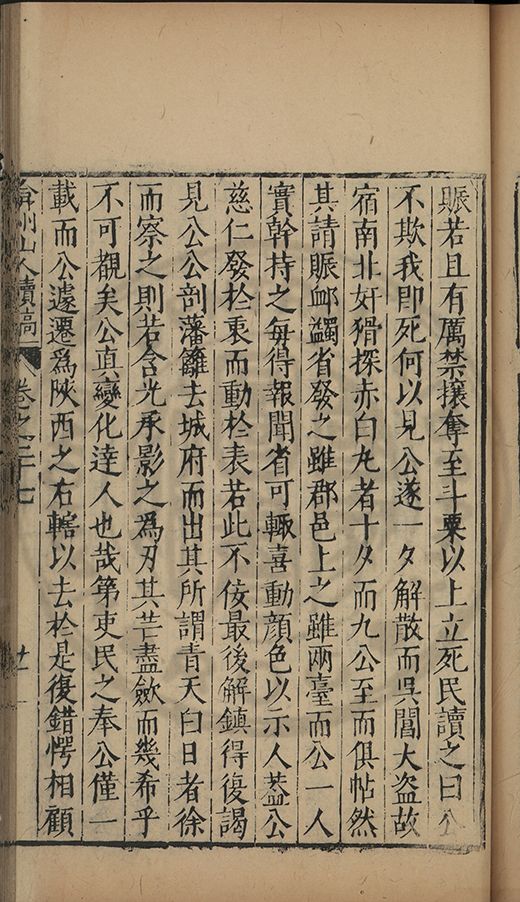 賑若且有厲禁攘奪至斗粟以上立死民讀之曰公
不欺我即死何以見公遂一夕解散而吳閶大盜故
宿南北奸猾探赤白丸者十夕而九公至而俱帖然
其請賑卹蠲省發之雖郡邑上之雖兩臺而公一人
實幹持之每得報聞省可輒喜動顔色以示人葢公
慈仁發於衷而動於表若此不佞最後解鎮得復謁
見公公剖藩籬去城府而出其所謂青天白日者徐
而察之則若含光承影之為刃其芒盡斂而幾希乎
不可觀矣公真變化達人也哉第吏民之奉公僅一
載而公遽遷為陝西之右轄以去於是復錯愕相顧
弇州山人續稿
卷之二十七
廿